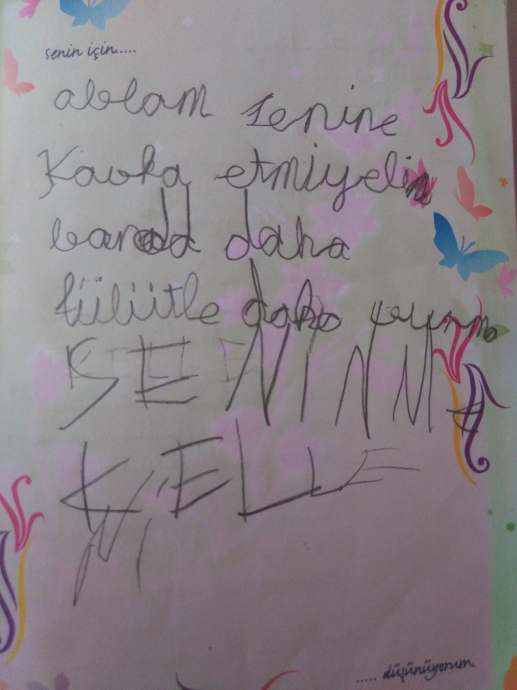 senin için.....
ablam senine
Kavka etmiyelin
barada daha
lülütle daha
SENİN
KELLE
Nİ
..... düşünüyorum